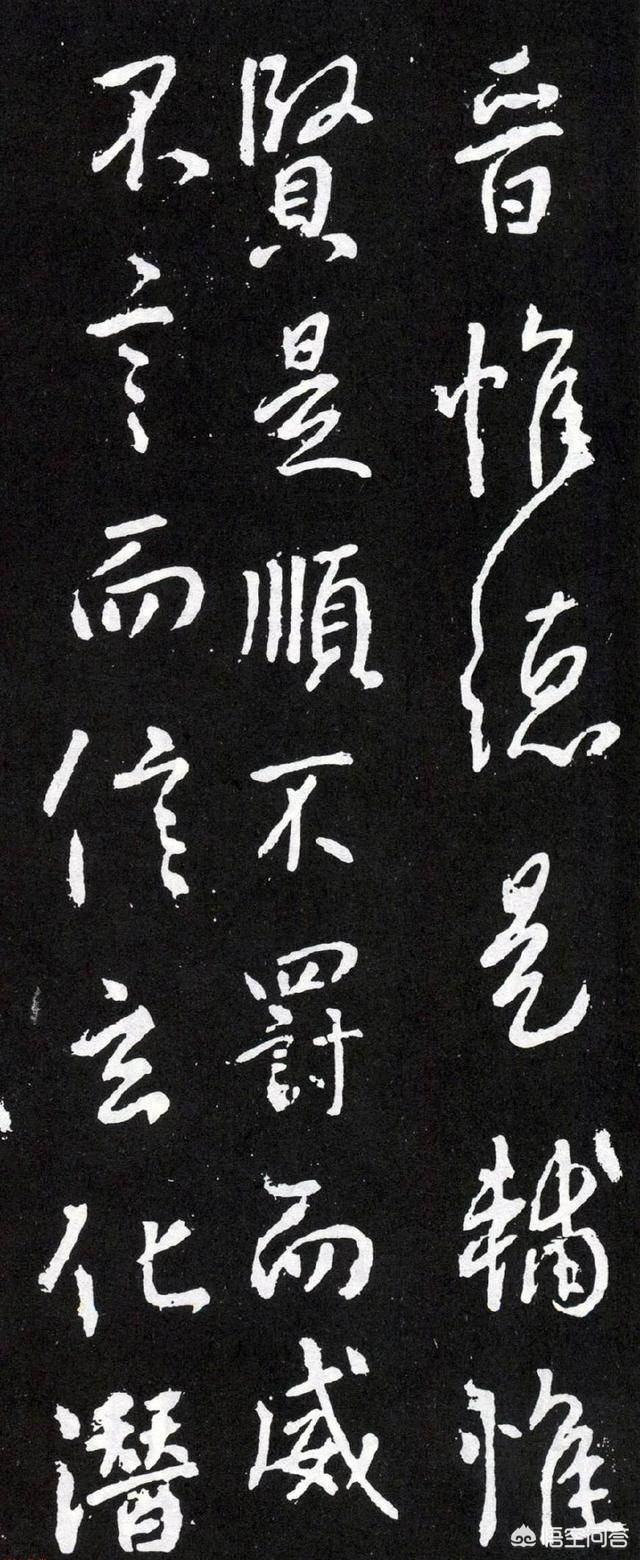 晋惟德是輔惟
賢是順不罰而威
不言而信玄化潛
悟空问答